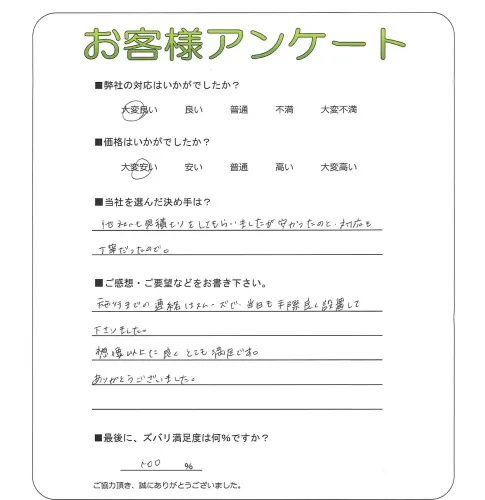 お客様アンケート
■弊社の対応はいかがでしたか?
大変良い 良い 普通 不満 大変不満
■価格はいかがでしたか?
大変安い 安い 普通 高い 大変高い
■当社を選んだ決め手は?
他社にも見積もりをしてもらいましたが安かったのと、対応も
丁寧だったので。
■ご感想・ご要望などをお書き下さい。
施行までの連絡はスムーズで、当日も手際良く設置して
下さりました。
想像以上に良く とても満足です。
ありがとうございました。
■最後に、ズバリ満足度は何%ですか?
100 %
ご協力頂き、誠にありがとうございました。